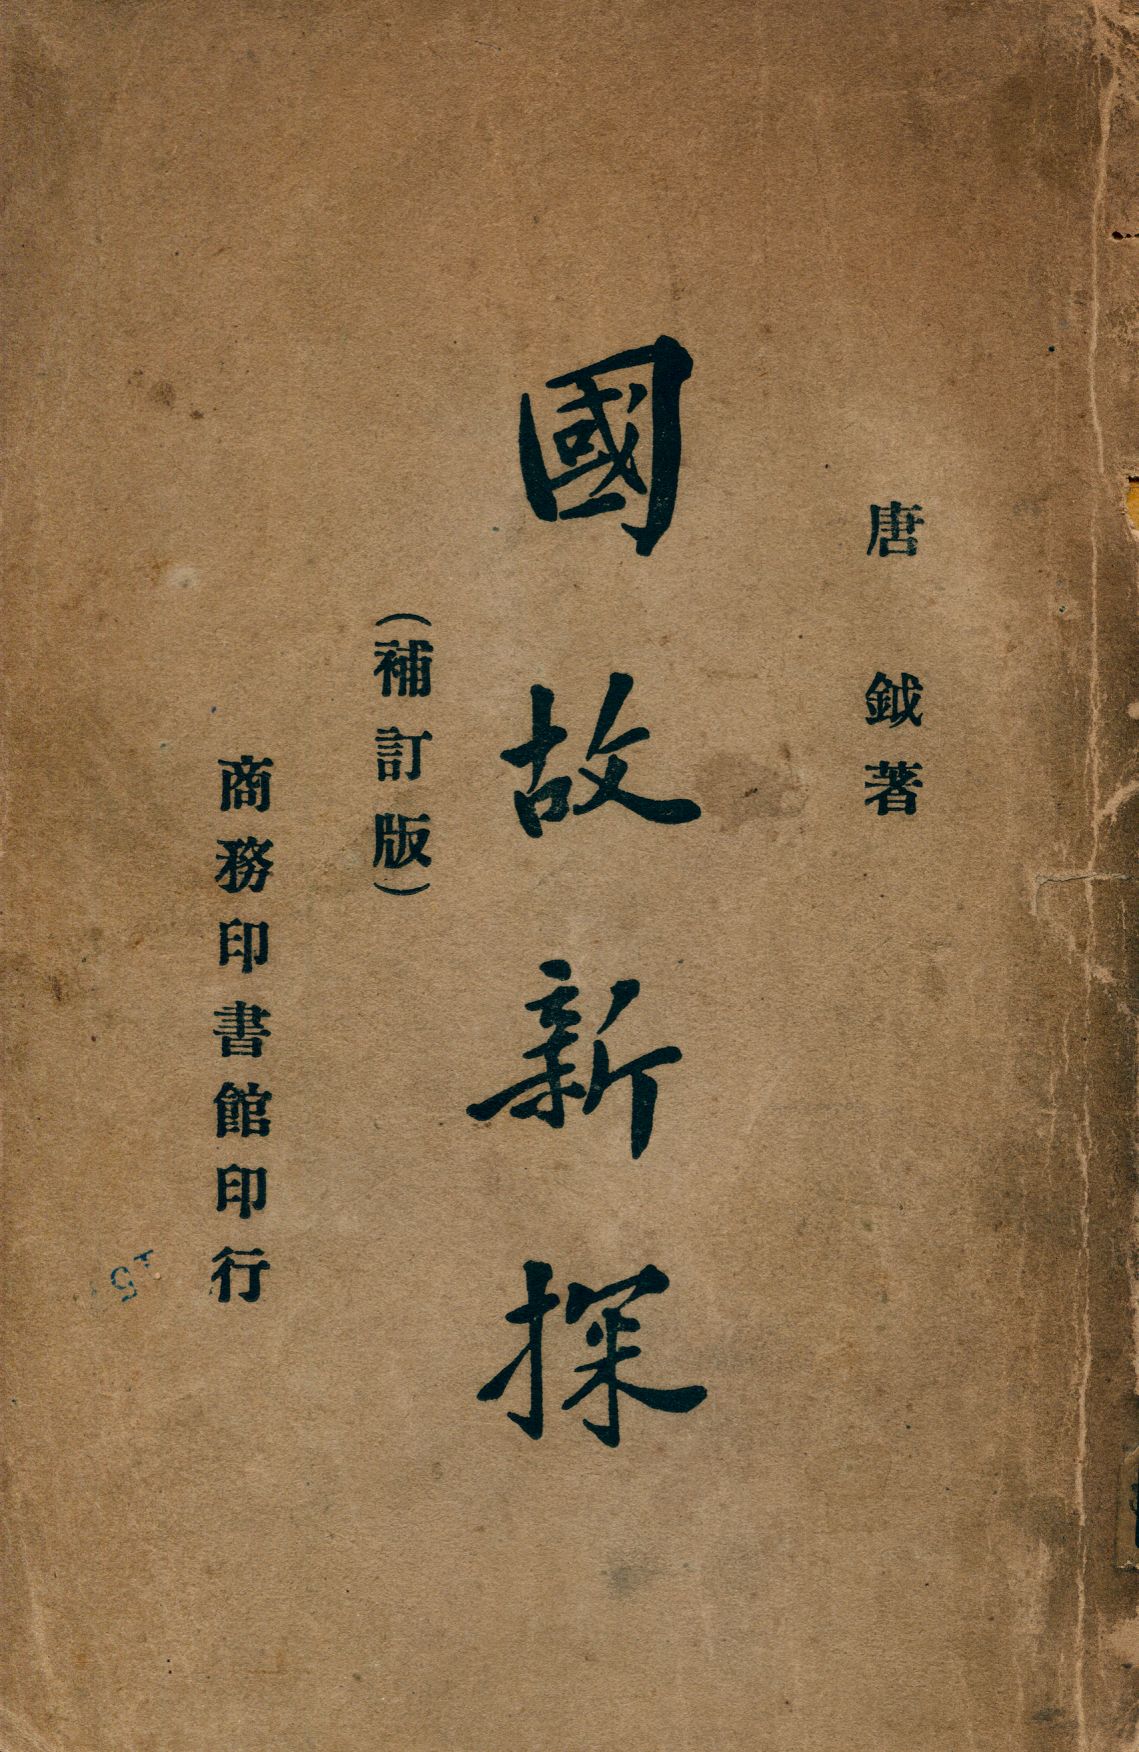 唐鉞著
國故新探
（補訂版）
商務印書館印行